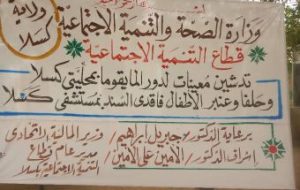 ولاية
كسلا
وزارة الصحة والتنمية الاجتماعية
قطاع التنمية الاجتماعية
تدشين معينات لدور المايقوما بمحليتي كسلا
وحلفا وعنبر الأطفال فاقدي السند بمستشفى كسلا
برعاية الدكتور/ جبريل ابراهيم/ وزير المالية الاتحادي
إشراف الدكتور/ الأمين علي الأمين/ مدير عام قطاع
التنمية الاجتماعية بكسلا